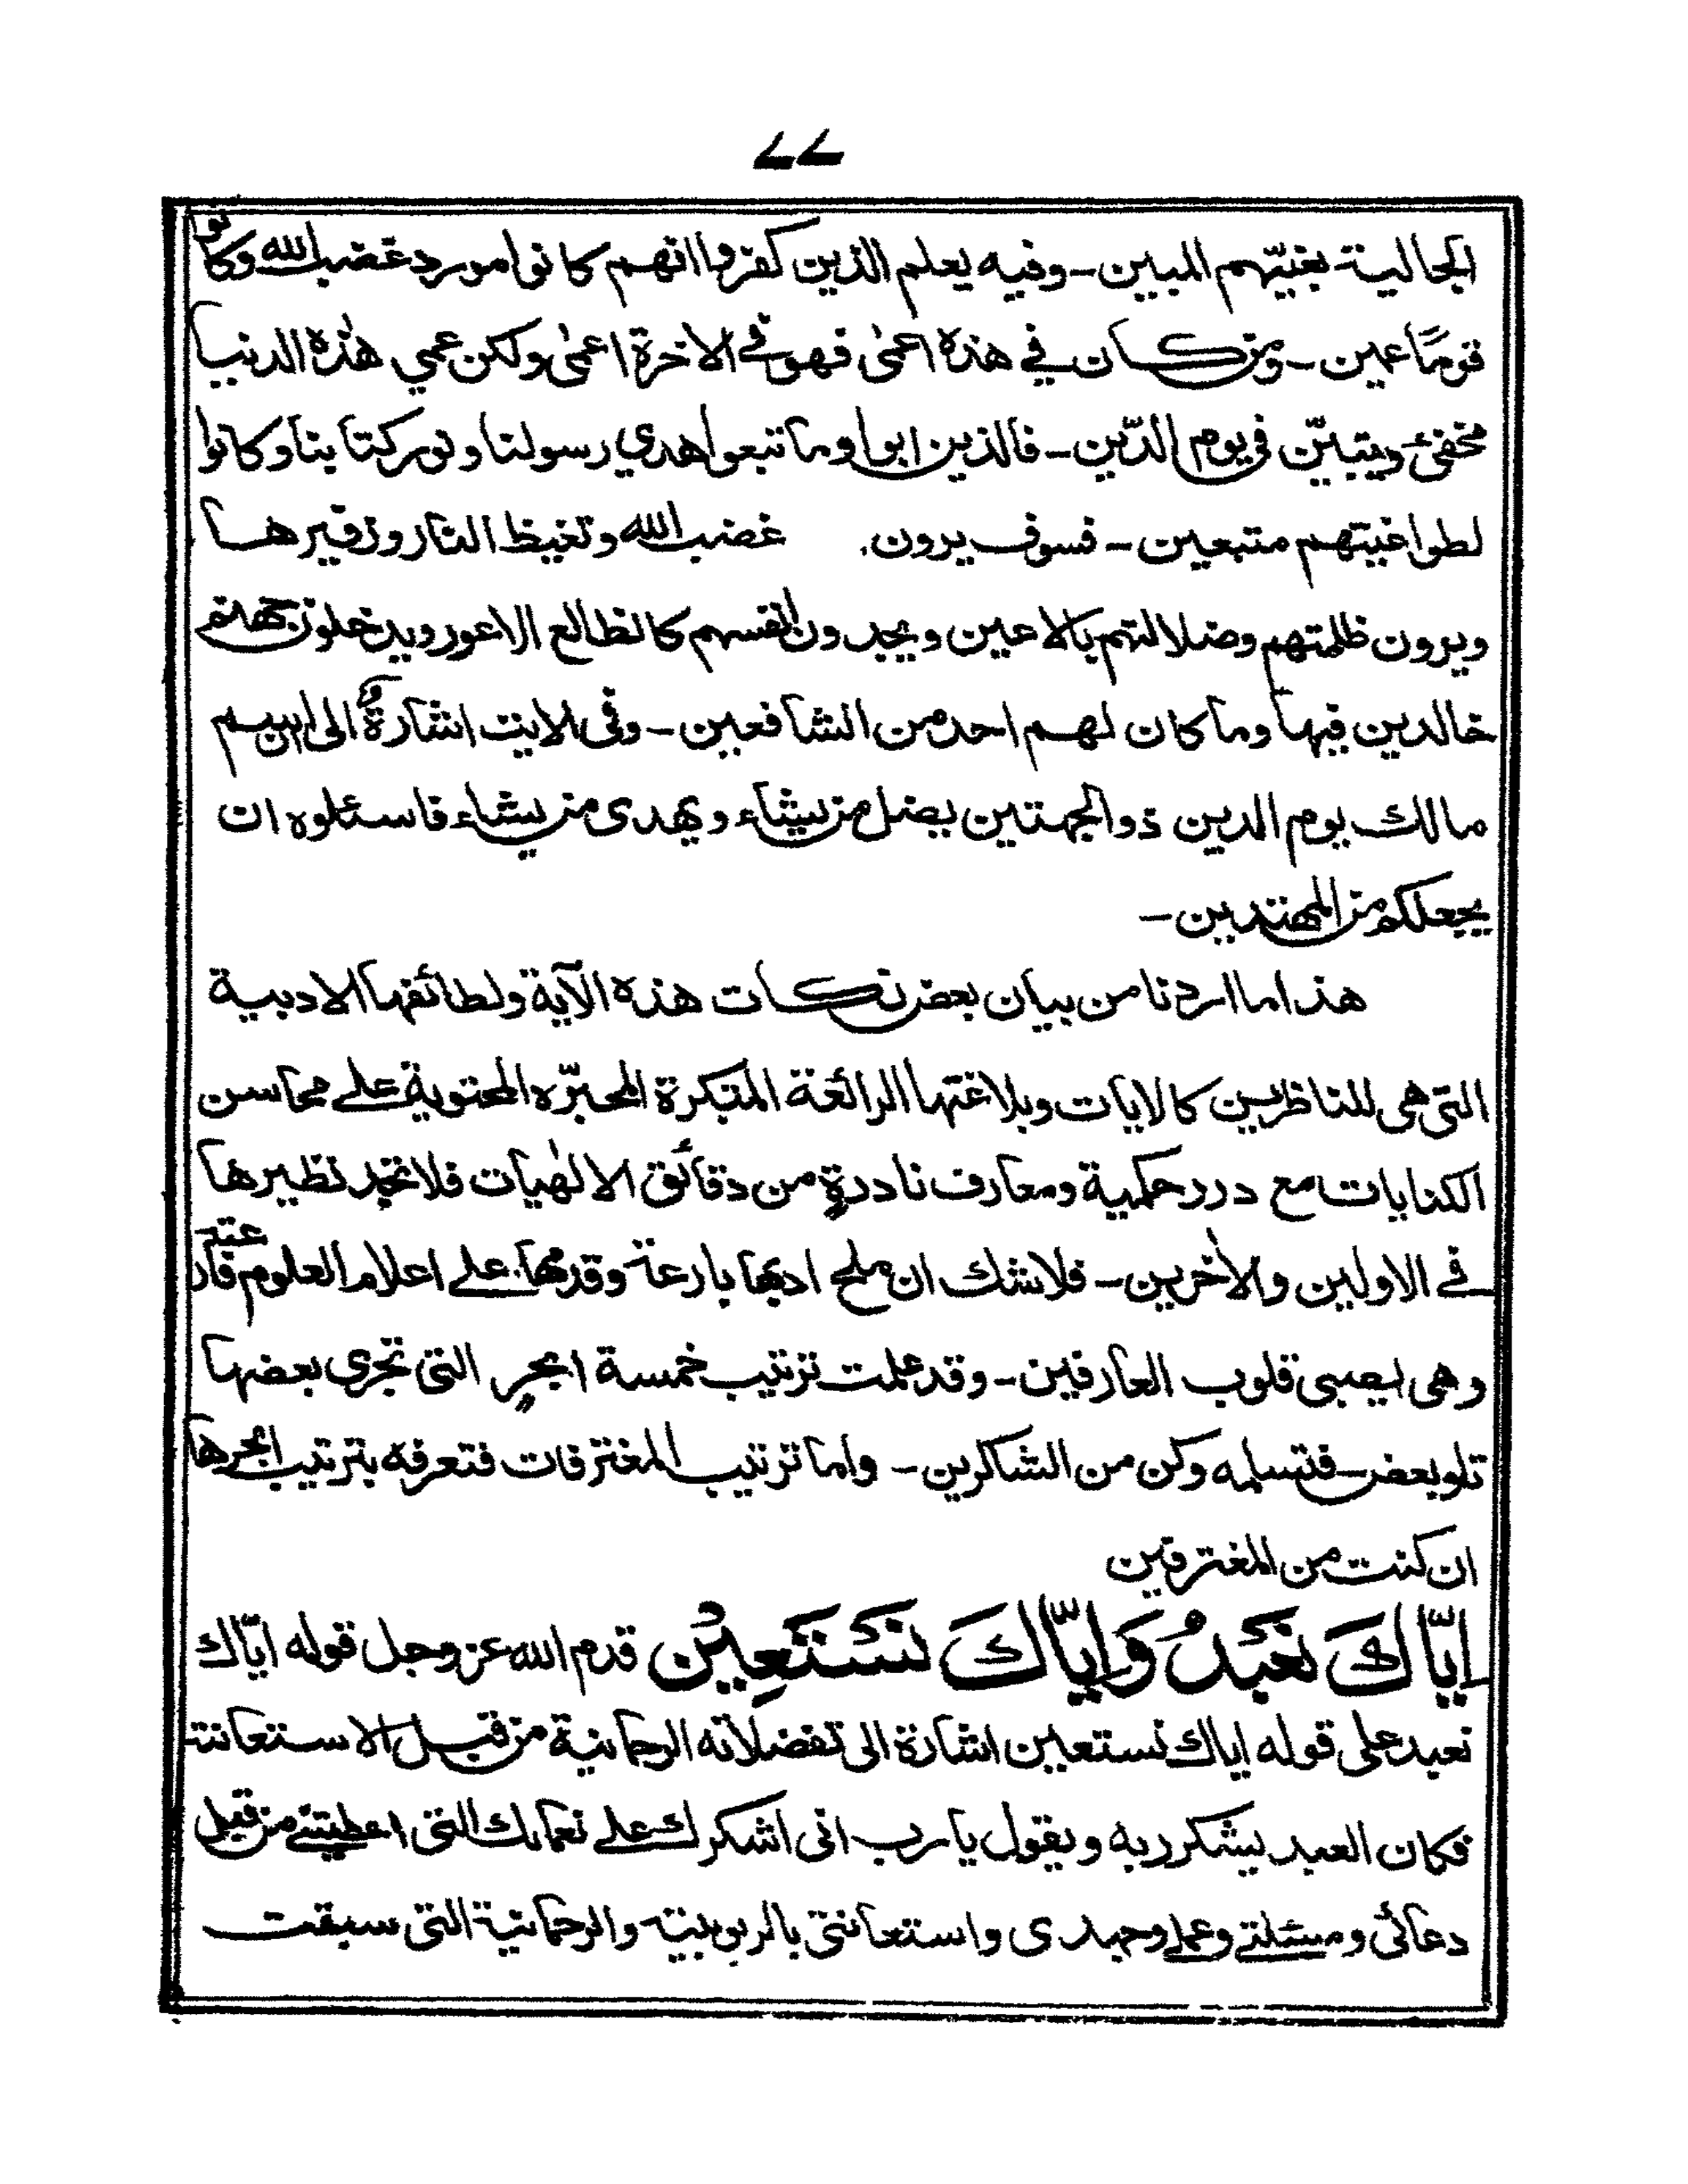 ٧٧
الجالية بغيّهم المبين - وفيه يعلم الذين كفروا انهم كانوا مورد غضب الله وكانوا
قومًا عمين - ومن كان في هذه اعمىٰ فهو في الاخرة اعمىٰ ولكن عمي هٰذه الدنيا
مخفيّ ويتبيّن في يوم الدّين - فالذين ابوا وما تبعوا هدي رسولنا ونور كتابنا وكانوا
لطواغيتهم متبعين - فسوف يرون غضب الله وتغيظ النار وزفيرها
ويرون ظلمتهم وضلالتهم بالاعين ويجدون انفسهم كالظالع الاعور ويدخلون جهنم
خالدين فيها وما كان لهم احد من الشافعين - وفى الاية اشارةٌ الى ان اسم
مالك يوم الدين ذو الجهتين يضل من يشاء ويهدى من يشاء فاسئلوه ان
يجعلكم من المهتدين -
هذا ما اردنا من بيان بعض نكات هذه الآية ولطائفها الادبية
التى هى للناظرين كالايات وبلاغتها الرائعة المبتكرة المحبّرة المحتوية على محاسن
الكنايات مع درر حكمية ومعارف نادرةٍ من دقائق الالٰهيات فلا تجد نظيرها
في الاولين والاٰخرين - فلا شك ان ملح ادبها بارعة وقدمها على اعلام العلوم فارعة
وهى يصبى قلوب العارفين - وقد علمت ترتيب خمسة ابحرٍ التى تجرى بعضها
تلو بعض - فتسلمه وكن من الشاكرين - واما ترتيب المغترفات فتعرفه بترتيب ابحرها
ان كنت من المغترفين
اِيَّاكَ نَعْبُدُ وَاِيَّاكَ نَسْتَعِيْنُ قدم الله عز وجل قوله ايّاك
نعبد على قوله اياك نستعين اشارة الى تفضلاته الرحمانية من قبل الاستعانة
فكان العبد يشكر ربه ويقول يا رب انى اشكرك على نعمائك التى اعطيتنى من قبل
دعائى ومسئلتى وعملى وجهدى واستعانتى بالربوبية والرحمانية التى سبقت